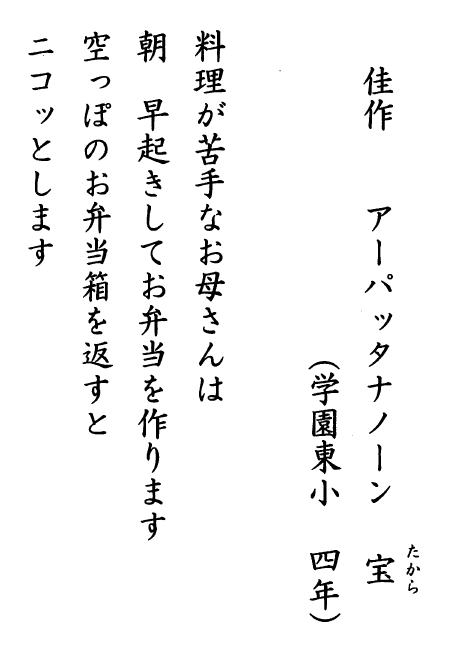 佳作　アーパッタナノーン　宝
たから
（学園東小　四年）
料理が苦手なお母さんは
朝　早起きしてお弁当を作ります
空っぽのお弁当箱を返すと
ニコッとします